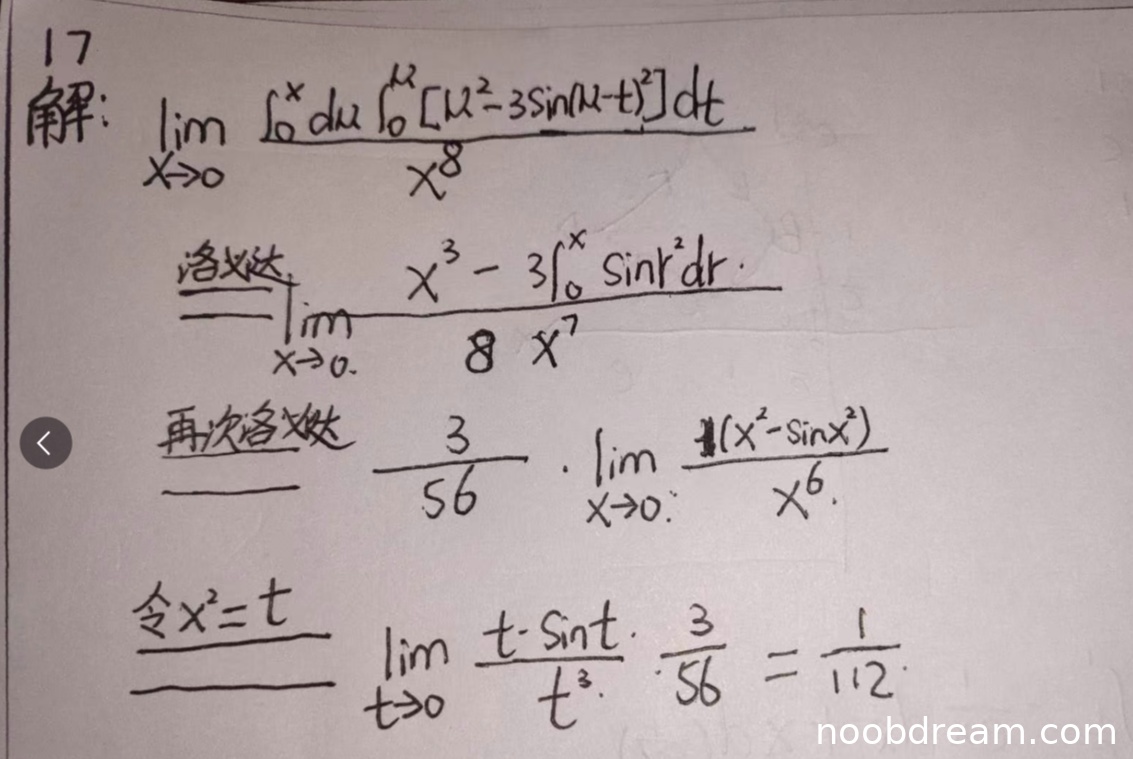 17
解: lim_{x→0} ∫_0^x dμ ∫_0^μ [μ²-3sin(μ-t)²]dt / x⁸
洛必达 lim_{x→0.} x³ - 3∫_0^x sinr²dr. / 8 x⁷
再次洛必达 3/56 · lim_{x→0.} 1(x²-sinx²) / x⁶.
令x²=t lim_{t→0} t-sint. / t³. · 3/56 = 1/112.
noobdream.com